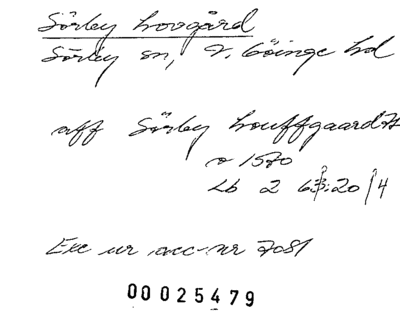 Sörby hovgård
Sörby sn, V. Göinge hd
aff Sörby houffgaardt
o 1570
Lb 2 63:20/4
Exc ur acc-nr 7081
00025479